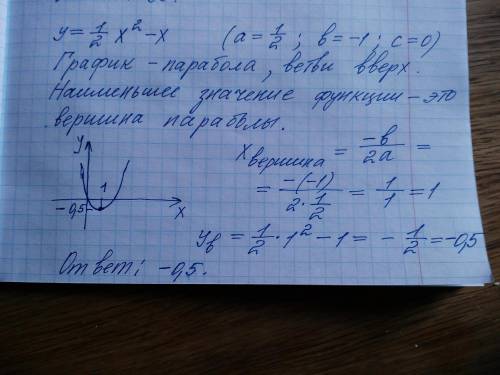 y = 1/2 x² - x (a = 1/2 ; в = -1 ; c = 0)
График - парабола, ветви вверх.
Наименьшее значение функции - это
вершина парабола.
x вершина = -в/2a =
= -(-1)/(2·1/2) = 1/1 = 1
y
1
-0,5
x
yв = 1/2 · 1² - 1 = - 1/2 = -0,5
Ответ: -0,5.